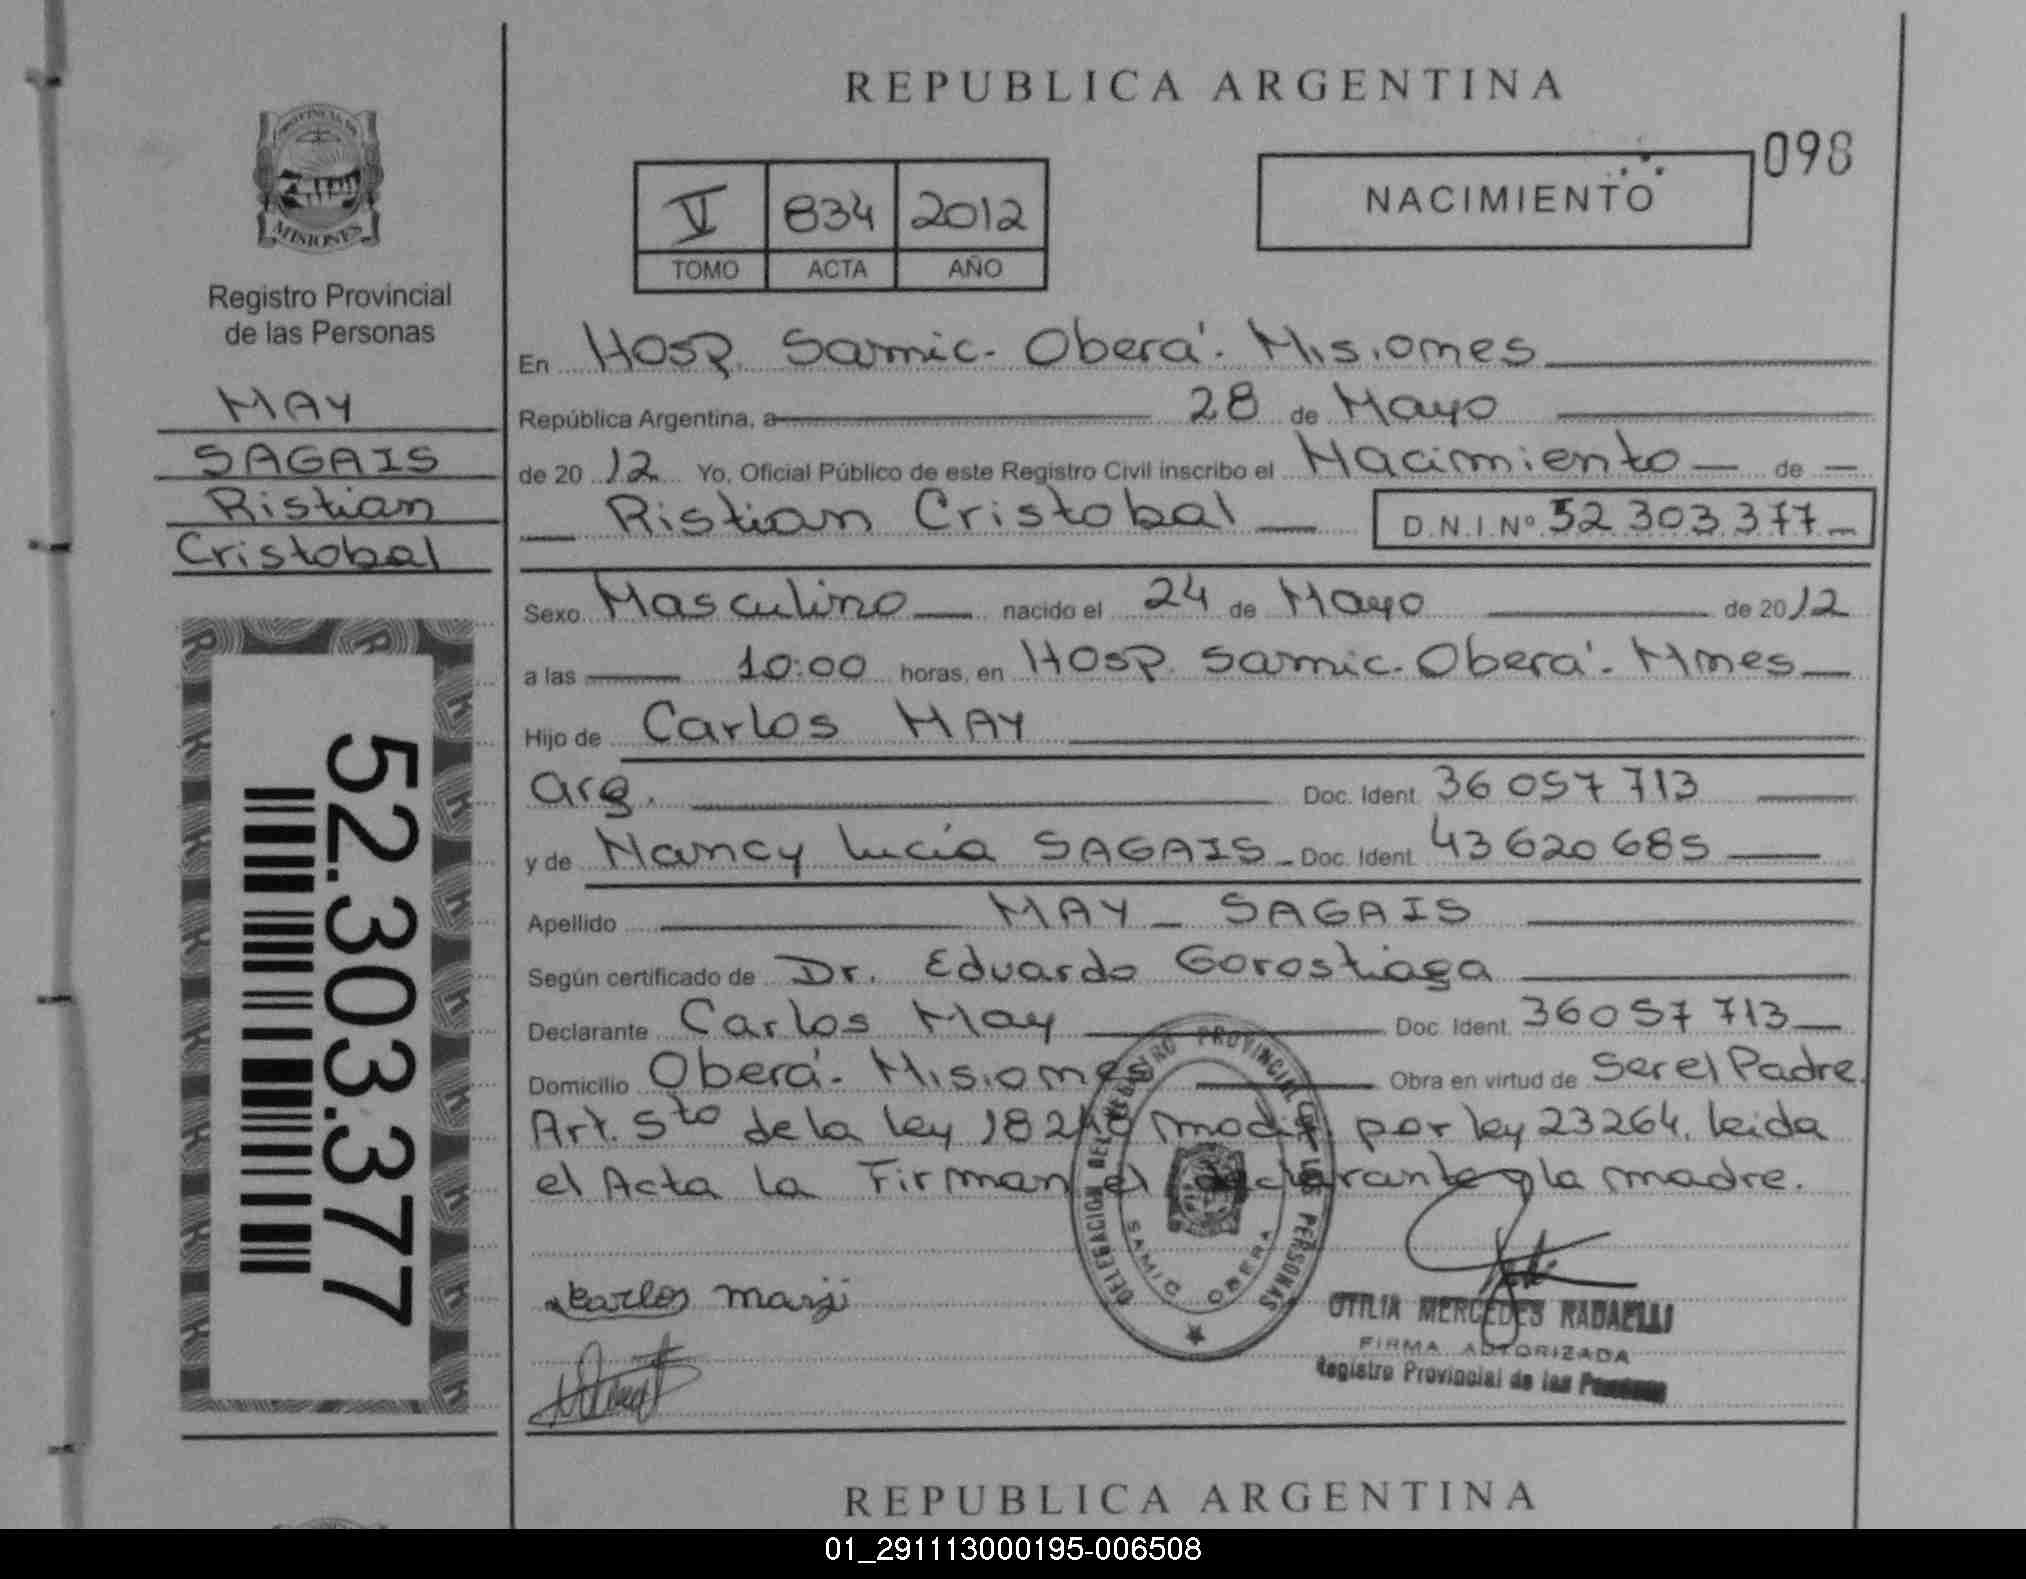 REPUBLICA ARGENTINA
098
PROVINCIA DE
MISIONES
Registro Provincial
de las Personas
MAY
SAGAIS
Ristian
Cristobal
52.303.377
V 834 2012
TOMO ACTA AÑO
NACIMIENTO
En Hosp. Samic. Oberá. Misiones
República Argentina, a 28 de Mayo
de 2012 Yo, Oficial Público de este Registro Civil inscribo el Nacimiento de
Ristian Cristobal D.N.I.Nº 52 303 377
Sexo Masculino nacido el 24 de Mayo de 2012
a las 10:00 horas, en Hosp. Samic. Oberá. Mnes
Hijo de Carlos MAY
arg. Doc. Ident. 36 057 713
y de Nancy Lucía SAGAIS Doc. Ident. 43 620 685
Apellido MAY SAGAIS
Según certificado de Dr. Eduardo Gorostiaga
Declarante Carlos May Doc. Ident. 36057 713
Domicilio Oberá. Misiones Obra en virtud de Ser el Padre.
Art. 5to de la ley 18248 modif. por ley 23264. leida
el Acta la Firman el declarante y la madre.
DELEGACION DEL REGISTRO PROVINCIAL DE LAS PERSONAS
SAMIC OBERA
OTILIA MERCEDES RADAELLI
FIRMA AUTORIZADA
Registro Provincial de las Personas
REPUBLICA ARGENTINA
01_291113000195-006508